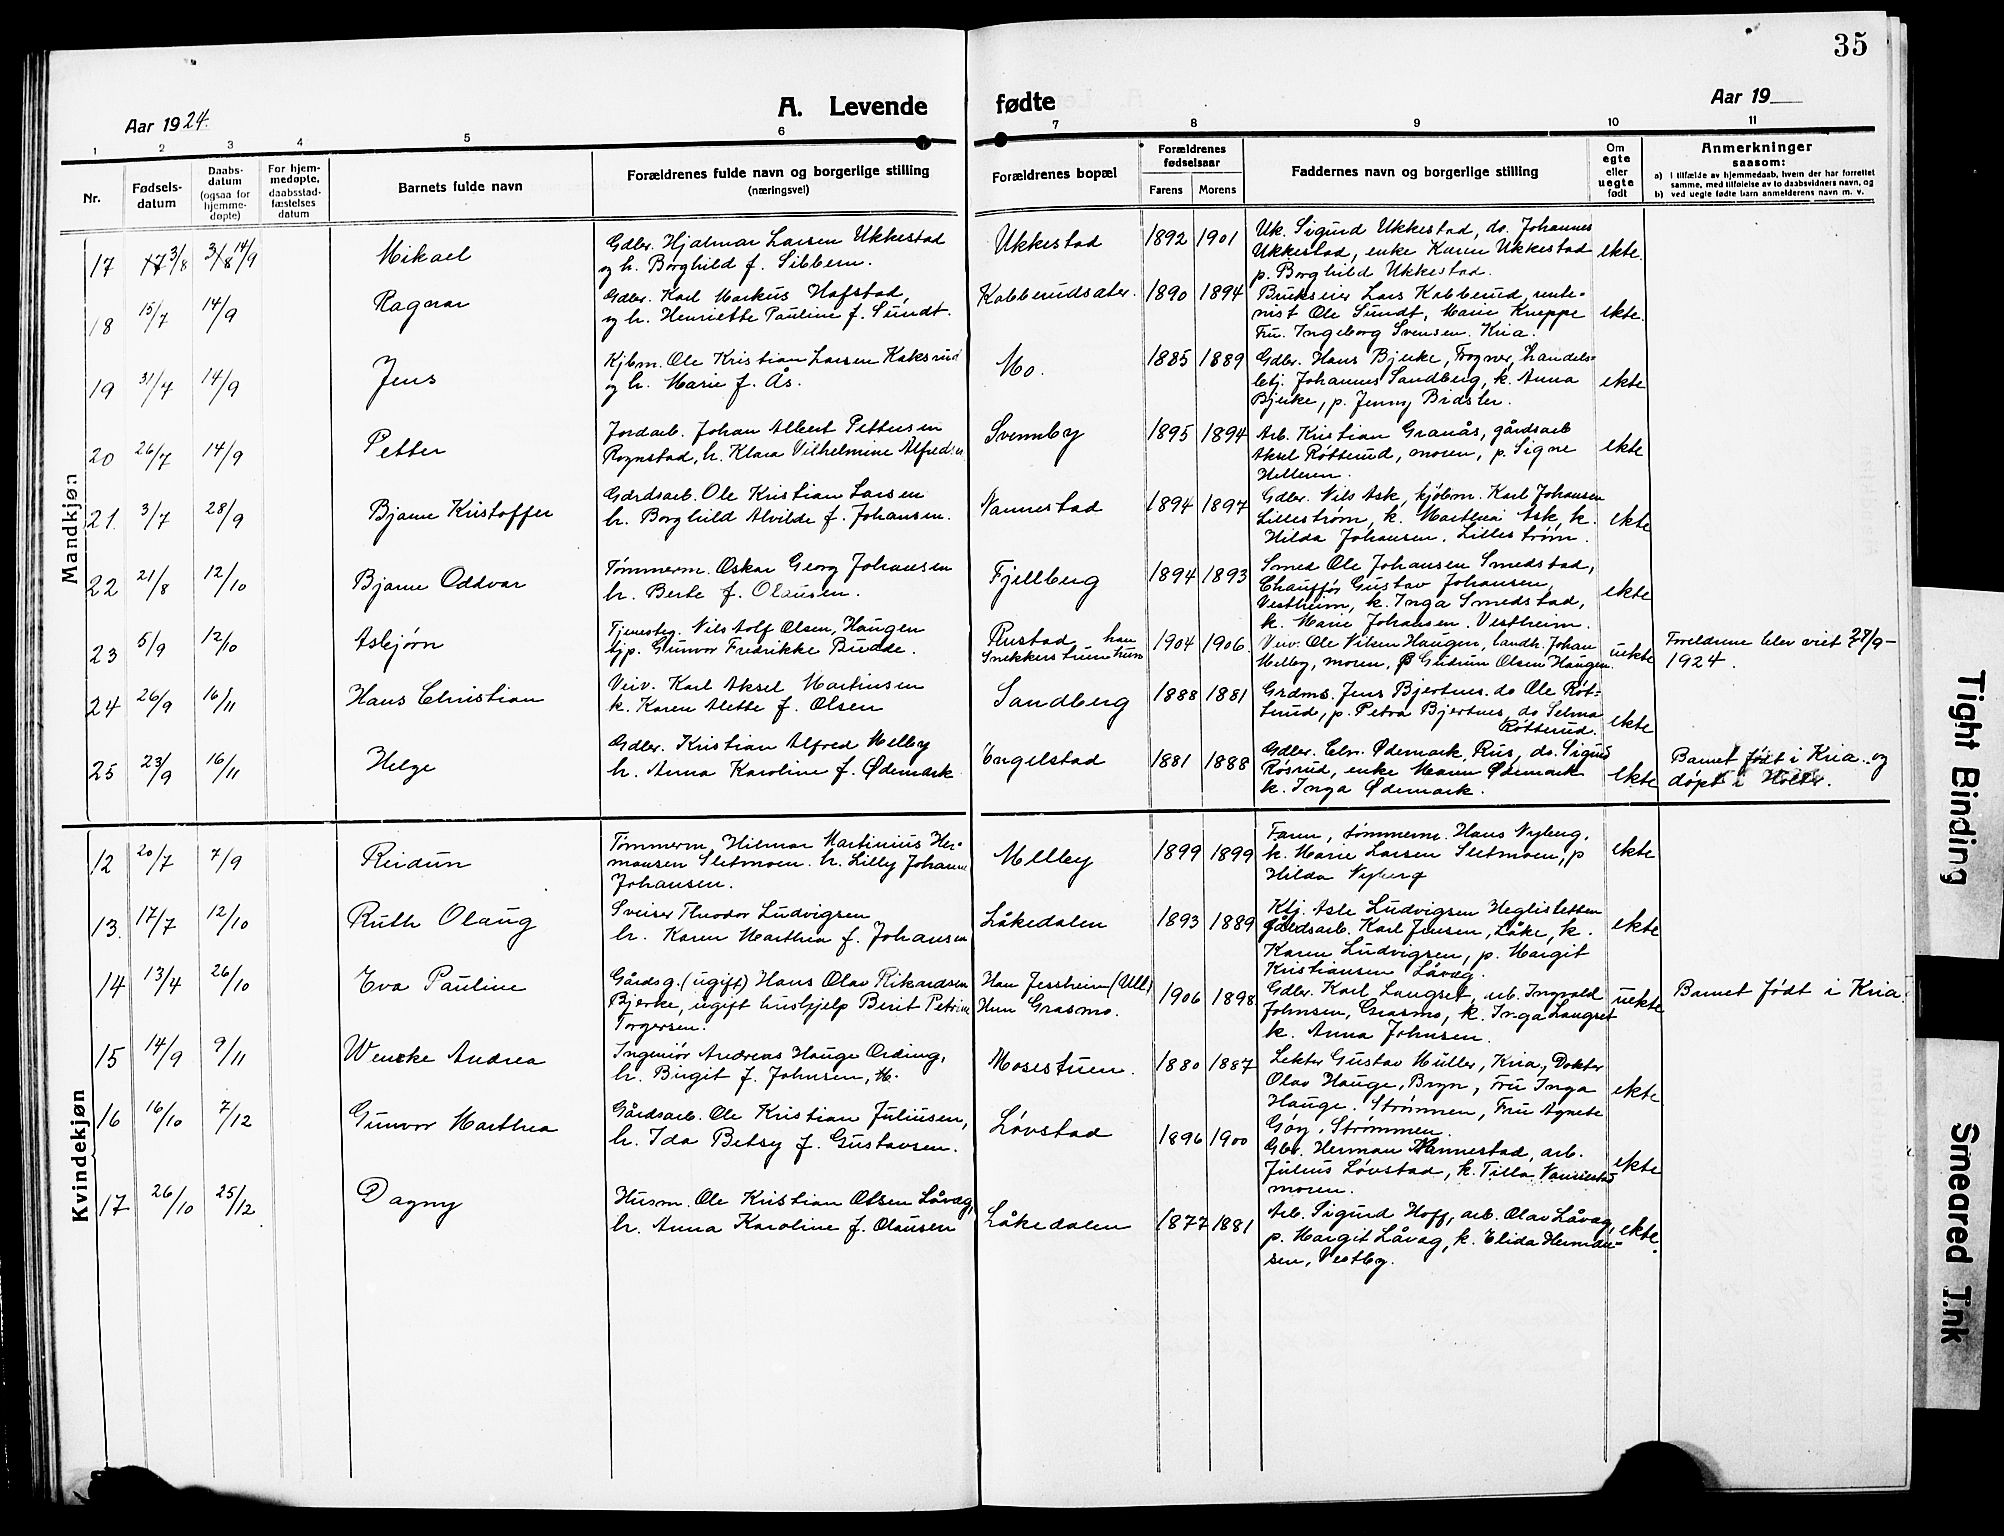 35
A. Levende fødte
Aar 1924.
Aar 19
1 2 3 4 5 6 7 8 9 10 11
Nr.
Fødsels-
datum
Daabs-
datum
(ogsaa for
hjemme-
døpte)
For hjem-
medøpte,
daabsstad-
fæstelses
datum
Barnets fulde navn
Forældrenes fulde navn og borgerlige stilling
(næringsvei)
Forældrenes bopæl
Forældrenes
fødselsaar
Farens Morens
Faddernes navn og borgerlige stilling
Om
egte
eller
uegte
født
Anmerkninger
saasom:
a) i tilfælde av hjemmedaab, hvem der har forrettet
samme, med tilføielse av to daabsvidners navn, og
b) ved uegte fødte barn anmelderens navn m. v.
Mandkjøn
17 3/8 14/9 Mikael
Gdbr. Hjalmar Larsen Ukkestad
og h. Borghild f. Sibbern.
Ukkestad 1892 1901
Uk. Sigurd Ukkestad, do. Johannes
Ukkestad, enke Karen Ukkestad
p. Borghild Ukkestad.
ekte.
18 15/7 14/9 Ragnar
Gdbr. Karl Markus Hafstad,
og h. Henriette Pauline f. Sundt.
Kobberudsæter. 1890 1894
Brukseier Lars Kobberud, rente-
nist Ole Sundt, Marie Kneppe
Fru. Ingeborg Svensen. Kria.
ekte.
19 31/7 14/9 Jens
Kjbm. Ole Kristian Larsen Kaksrud
og h. Marie f. Ås.
Mo. 1885 1889
Gdbr. Hans Bjerke, Frogner, handels-
betj. Johannes Sandberg, k. Anna
Bjerke, p. Jenny Bidsler.
ekte
20 26/7 14/9 Petter
Jordarb. Johan Albert Pettersen
Rognstad, h. Klara Vilhelmine Alfredsen
Svennby 1895 1894
Arb. Kristian Granås, gårdsarb
Aksel Røtterud, moren, p. Signe
Helleren.
ekte
21. 3/7 28/9 Bjarne Kristoffer
Gårdsarb. Ole Kristian Larsen
h. Borghild Alvilde f. Johansen.
Nannestad 1894 1897
Gdbr. Nils Ask, kjøbm. Karl Johansen
Lillestrøm, k. Marthea Ask, k.
Hilda Johansen. Lillestrøm.
ekte
22 21/8 12/10 Bjarne Oddvar
Tømmerm. Oskar Georg Johansen
h. Berte f. Olausen.
Fjellberg 1894 1893
Smed Ole Johansen Smedstad,
Chauffør Gustav Johansen,
Vestheim, k. Inga Smedstad,
k. Marie Johansen. Vestheim.
ekte
23 5/9 12/10 Asbjørn
Tjenesteg. Nils Adolf Olsen, Haugen
hjp. Gunvor Fredrikke Budde.
Rustad han
Snekkerstuen hun
1904 1906.
Veiv. Ole Nilsen Haugen, landh. Johan
Melby, moren, p Gudrun Olsen Haugen.
uekte
Foreldrene blev viet 27/9-
1924.
24 26/9 16/11 Hans Christian
Veiv. Karl Aksel Martinsen
h. Karen Alette f. Olsen
Sandberg 1888 1881
Grdms. Jens Bjertnes. do Ole Røt-
terud, p. Petra Bjertnes, do Selma
Røtterud.
ekte
25 23/9 16/11 Helge
Gdbr. Kristian Alfred Melby
h. Anna Karoline f. Ødemark
Engelstad 1881 1888
Gdbr. Edv. Ødemark, Rus, do. Sigurd
Røsrud, enke Maren Ødemark
k. Inga Ødemark.
ekte
Barnet født i Kria. og
døpt i Holter.
Kvindekjøn
12 20/7 7/9 Reidun
Tømmerm. Hilmar Martinius Her-
mansen Slitmoen. h. Lilly Johanne
Johansen.
Melby 1899 1899
Faren, tømmerm. Hans Nyberg,
k. Marie Larsen Slitmoen, p
Hilda Nyberg
ekte
13. 17/7 12/10 Ruth Olaug
Sveiser Theodor Ludvigsen
h. Karen Marthea f. Johansen
Låkedalen 1893 1889
Ktj. Asle Ludvigsen Heglisletten
Gårdsarb. Karl Jensen, Låke, k.
Karen Ludvigsen, p. Margit
Kristiansen Låvåg.
ekte
14 13/4 26/10 Eva Pauline
Gårdsg. (ugift) Hans Olav Rikardsen
Bjerke, ugift hushjelp Berit Petrine
Torgersen.
Han Jessheim (Ull)
Hun Grasmo.
1906 1898
Gdbr. Karl Laugset, arb. Ingvald
Johnsen, Grasmo, k. Inga Laugset
k. Anna Johnsen.
uekte
Barnet født i Kria.
15 14/9 9/11 Wencke Andrea
Ingeniør Andreas Hauge Ording,
h. Birgit f. Johnsen, M.
Mosestuen. 1880 1887
Lektor Gustav Müller, Kria, Doktor
Olav Hauge, Bryn, Fru Inga
Hauge. Strømmen, Fru Agnete
Gøy, Strømmen.
ekte.
16 16/10 7/12 Gunvor Marthea
Gårdsarb. Ole Kristian Juliusen,
h. Ida Betsy f. Gustavsen.
Løvstad 1896 1900
Gbr. Herman Nannestad, arb.
Julius Løvstad, k. Tilla Nannestad
moren.
ekte
17 26/10 25/12 Dagny
Husm. Ole Kristian Olsen Låvåg,
h. Anna Karoline f. Olausen
Låkedalen 1877 1881
Arb. Sigurd Hoff, arb. Olav Låvåg,
p. Margit Låvåg, k. Elida Herman-
sen, Vestby.
ekte.
Tight Binding
Smeared Ink